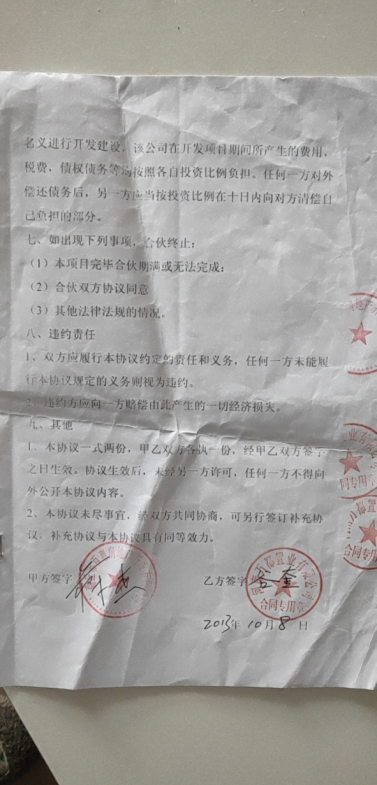 名义进行开发建设，该公司在开发项目期间所产生的费用，
税费，债权债务等均按照各自投资比例负担。任何一方对外
偿还债务后，另一方应当按投资比例在十日内向对方清偿自
己负担的部分。
七、如出现下列事项，合伙终止：
（1）本项目完毕合伙期满或无法完成；
（2）合伙双方协议同意
（3）其他法律法规的情况。
八、违约责任
1、双方应履行本协议约定的责任和义务，任何一方未能履
行本协议规定的义务则视为违约。
2、违约方应向一方赔偿由此产生的一切经济损失。
九、其他
1、本协议一式两份，甲乙双方各执一份，经甲乙双方签字
之日生效，协议生效后，未经另一方许可，任何一方不得向
外公开本协议内容。
2、本协议未尽事宜，经双方共同协商，可另行签订补充协
议，补充协议与本协议具有同等效力。
甲方签字 乙方签字
置业有限公司
合同专用
2013年10月8日